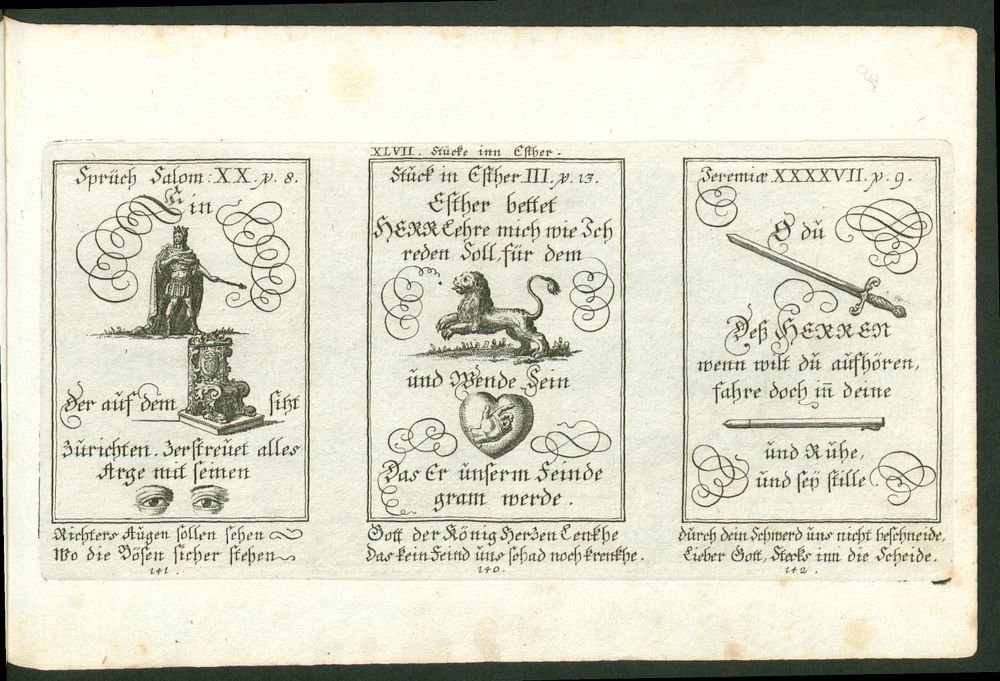 XLVII. Stücke inn Esther.
Sprüch Salom: XX. v. 8.
Ein
Der auf dem sitzt
zürichten. Zerstreüet alles
Arge mit seinen
Richters Aügen sollen sehen
Wo die Bösen sicher stehen
141.
Stück in Esther. III. v. 13.
Esther bettet
HERR Lehre mich wie Ich
reden Soll, für dem
und Wende Sein
Das Er ünserm Feinde
gram werde.
Gott der König Herzen Lenkhe
Das kein Feind üns schad noch krenkhe.
140.
Jeremiæ XXXXVII. v. 9.
O dü
Deß HERREN
wenn wilt dü aufhören,
fahre doch in̅ deine
und Rühe,
und seÿ stille
dürch dein Schwerd üns nicht beschneide,
Lieber Gott, Stecks inn die Scheide.
142.